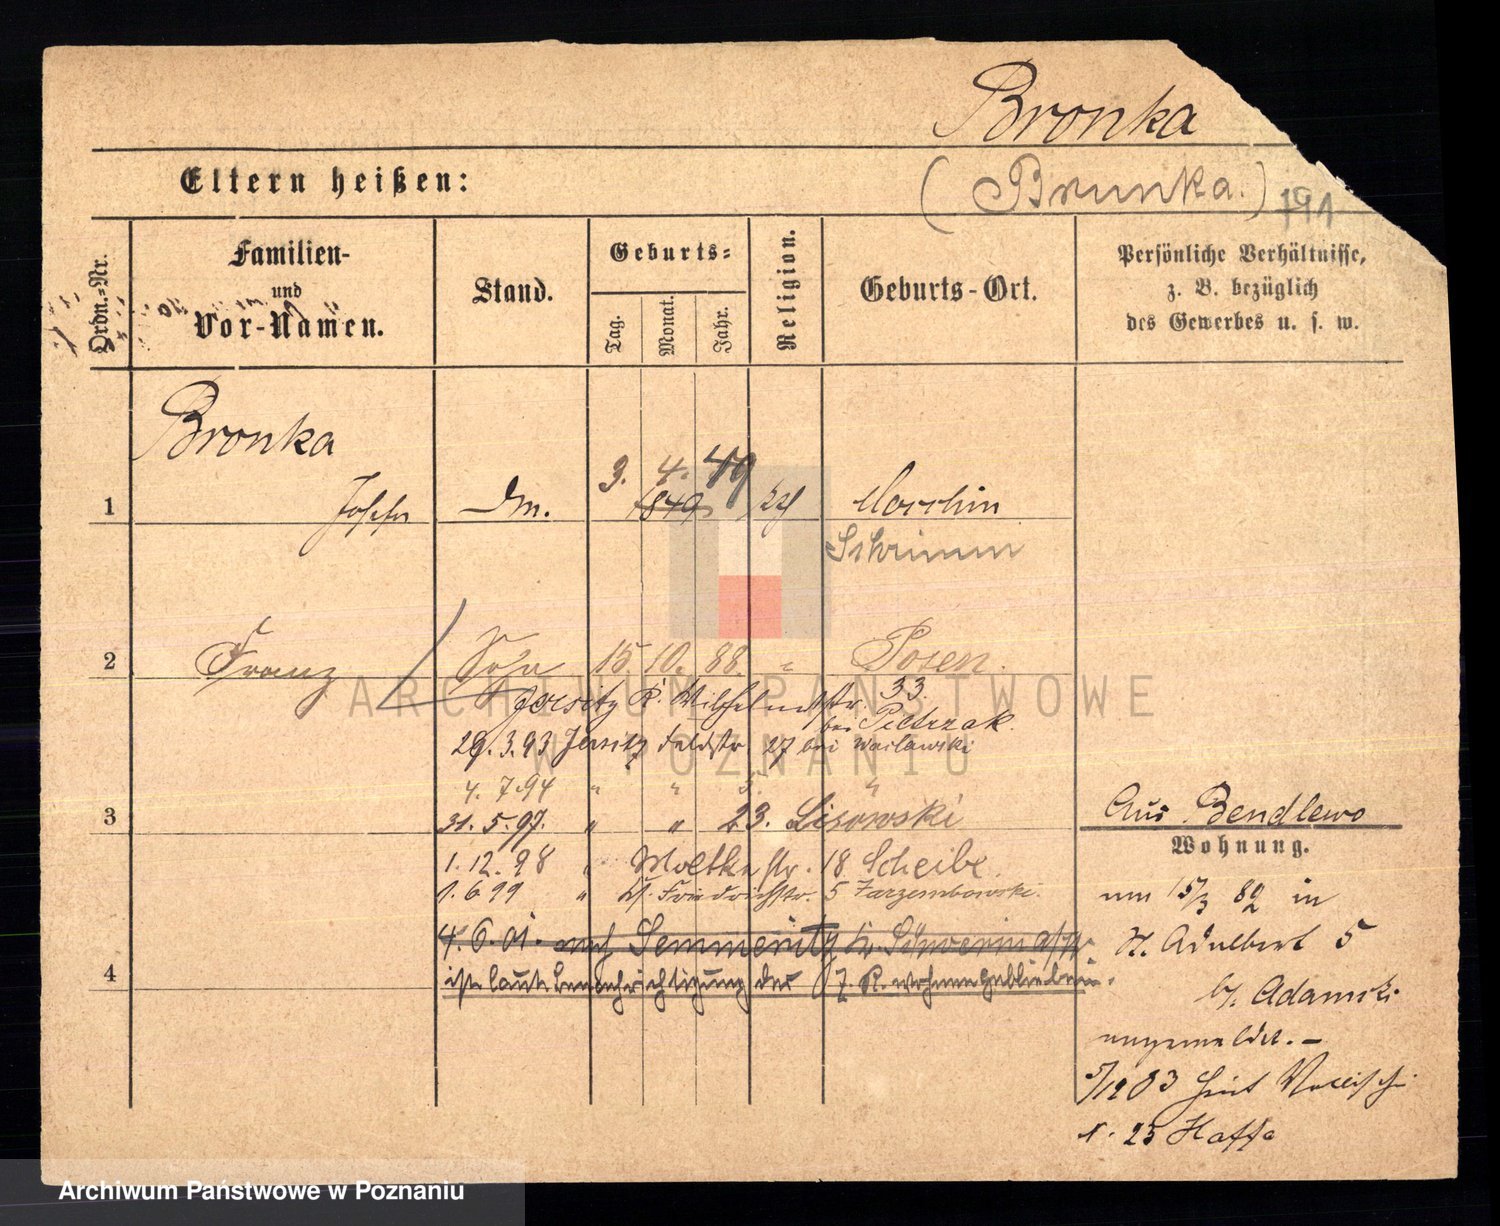 Bronka
(Brunka.) 791
Eltern heißen:
Ordn.-Nr.
Familien-
und
Vor-Namen.
Stand.
Geburts-
Tag.
Monat.
Jahr.
Religion.
Geburts-Ort.
Persönliche Verhältnisse,
z. B. bezüglich
des Gewerbes u. s. w.
Bronka
1 3. 4. 49
1849
Schrimm
2 Franz Sohn 15 10. 88. " Posen.
Jersitz Wilhelmstr. 33.
bei Pietrzak.
29.3.93 Jersitz Feldstr 27 bei Waclawski
4. 7.94 " " 5. "
3 31. 5. 97. " " 23. Lisowski
1. 12. 98 " Moltkestr. 18 Scheibe.
1. 6 99 " Kl. Friedrichstr. 5 Zarzembowski.
4. 6. 01. nach
4 ist laut Benachrichtigung der 7. R. wohnen geblieben.
Aus Bendlewo
Wohnung.
am 15/3 82 in
St. Adalbert 5
b. Adamski
angemeldet. -
5/12 83
N. 25
ARCHIWUM PAŃSTWOWE
W POZNANIU
Archiwum Państwowe w Poznaniu